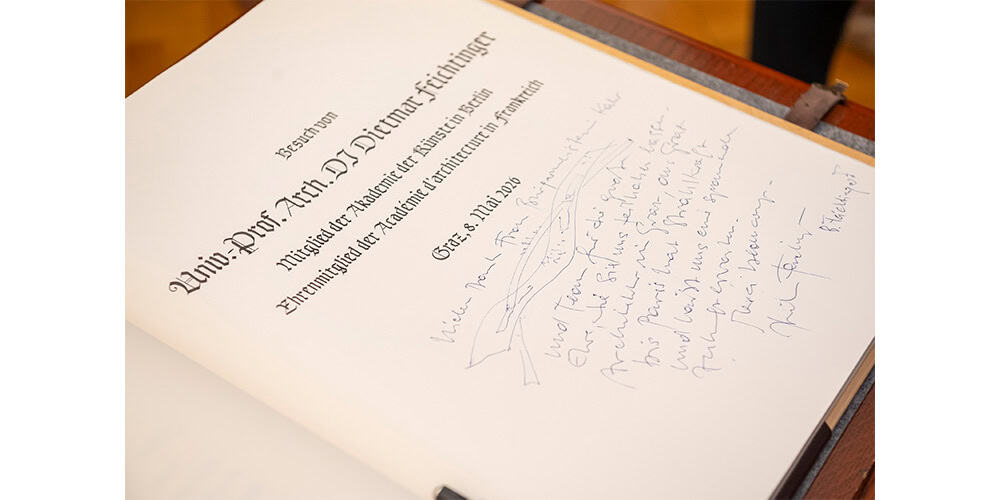 Besuch von
Univ.-Prof. Arch. DI Dietmar Feichtinger
Mitglied der Akademie der Künste in Berlin
Ehrenmitglied der Académie d'architecture in Frankreich
Graz, 8. Mai 2026
Vielen Dank Frau Bürgermeisterin Kahr
und Team für die große
Ehre die Sie uns lassen.
Architektur in Graz, aus Graz
bis Paris hat Strahlkraft
und lässt uns eine spannende
Zukunft erwarten.